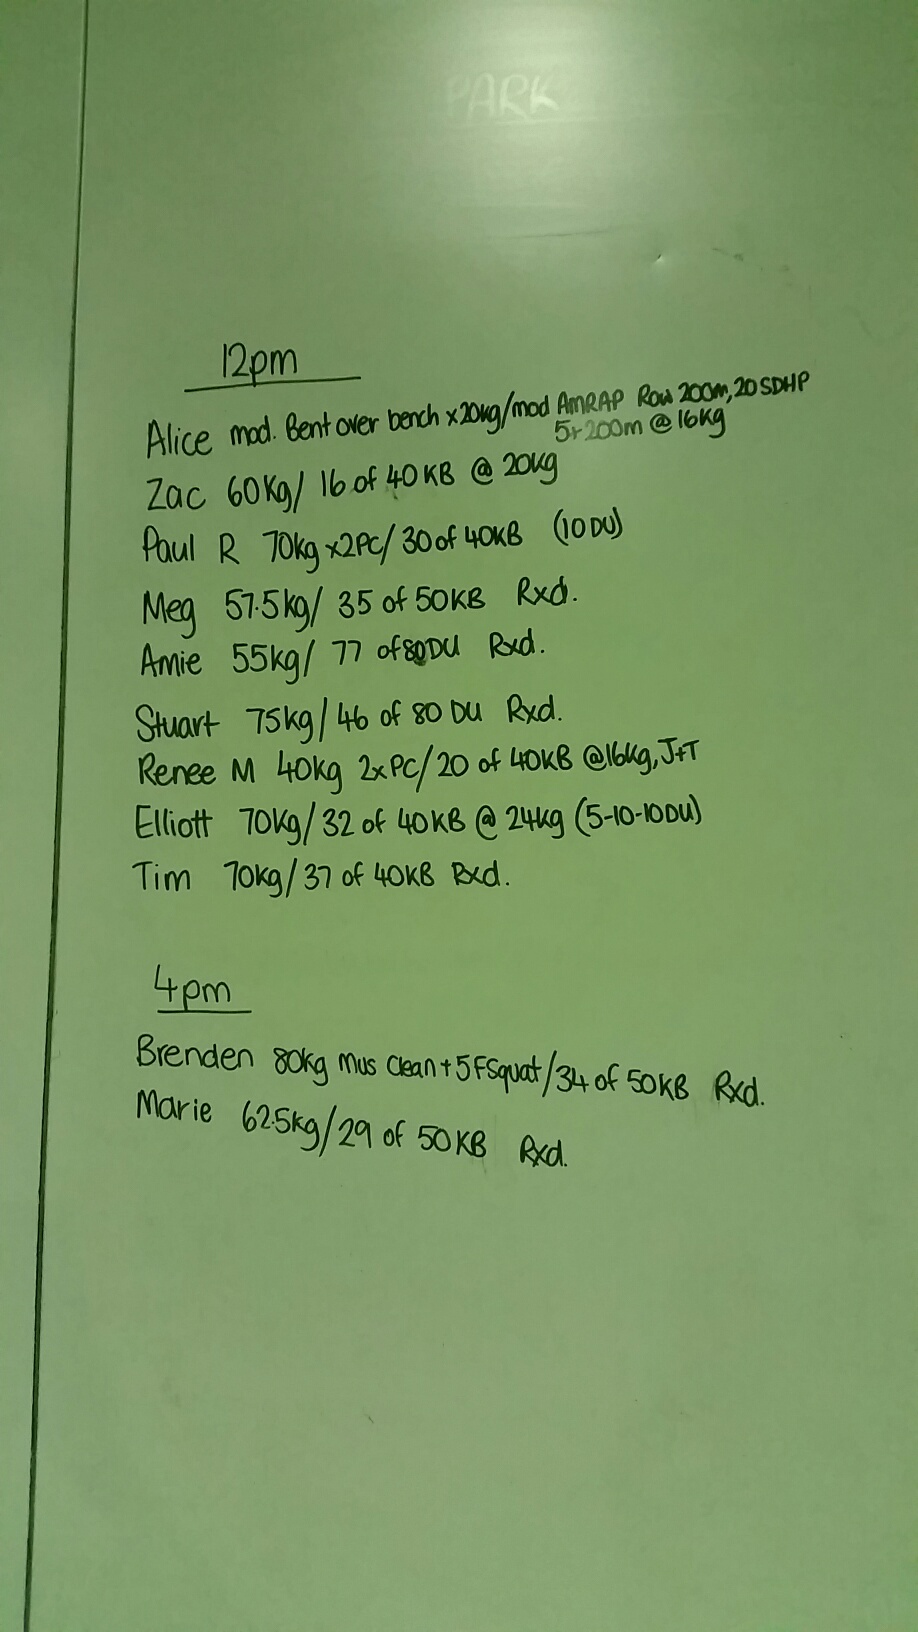 PARK
12pm
Alice mod. Bent over bench x20kg/mod AMRAP Row 200m, 20 SDHP
5r 200m @ 16kg
Zac 60kg/ 16 of 40KB @ 20kg
Paul R 70kg x2PC/ 30 of 40KB (10 DU)
Meg 57.5kg/ 35 of 50KB Rxd.
Amie 55kg/ 77 of 80DU Rxd.
Stuart 75kg/46 of 80 DU Rxd.
Renee M 40kg 2xPC/20 of 40KB @16kg, J+T
Elliott 70kg/32 of 40KB @ 24kg (5-10-10DU)
Tim 70kg/37 of 40KB Rxd.
4pm
Brenden 80kg Mus Clean+5FSquat/34 of 50KB Rxd.
Marie 62.5kg/29 of 50KB Rxd.